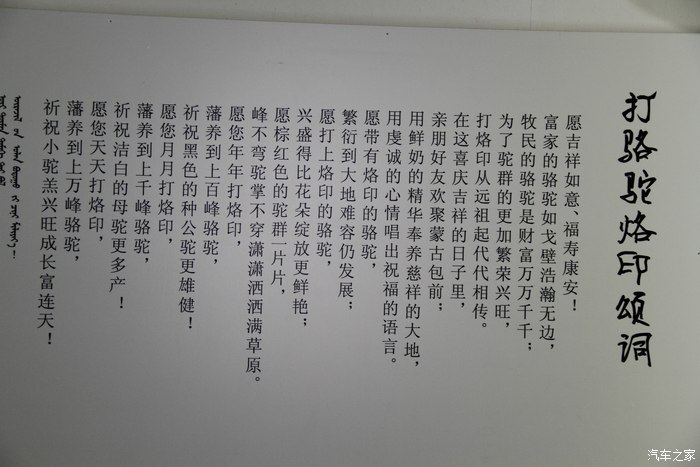 打骆驼烙印颂词
愿吉祥如意、福寿康安！
富家的骆驼如戈壁浩瀚无边，
牧民的骆驼是财富万万千千；
为了驼群的更加繁荣兴旺，
打烙印从远祖起代代相传。
在这喜庆吉祥的日子里，
亲朋好友欢聚蒙古包前；
用鲜奶的精华奉养慈祥的大地，
用虔诚的心情唱出祝福的语言。
愿带有烙印的骆驼，
繁衍到大地难容仍发展；
愿打上烙印的骆驼，
兴盛得比花朵绽放更鲜艳；
愿棕红色的驼群一片片，
峰不弯驼掌不穿潇潇洒洒满草原。
愿您年年打烙印，
藩养到上百峰骆驼，
祈祝黑色的种公驼更雄健！
愿您月月打烙印，
藩养到上千峰骆驼，
祈祝洁白的母驼更多产！
愿您天天打烙印，
藩养到上万峰骆驼，
祈祝小驼羔兴旺成长富连天！
汽车之家